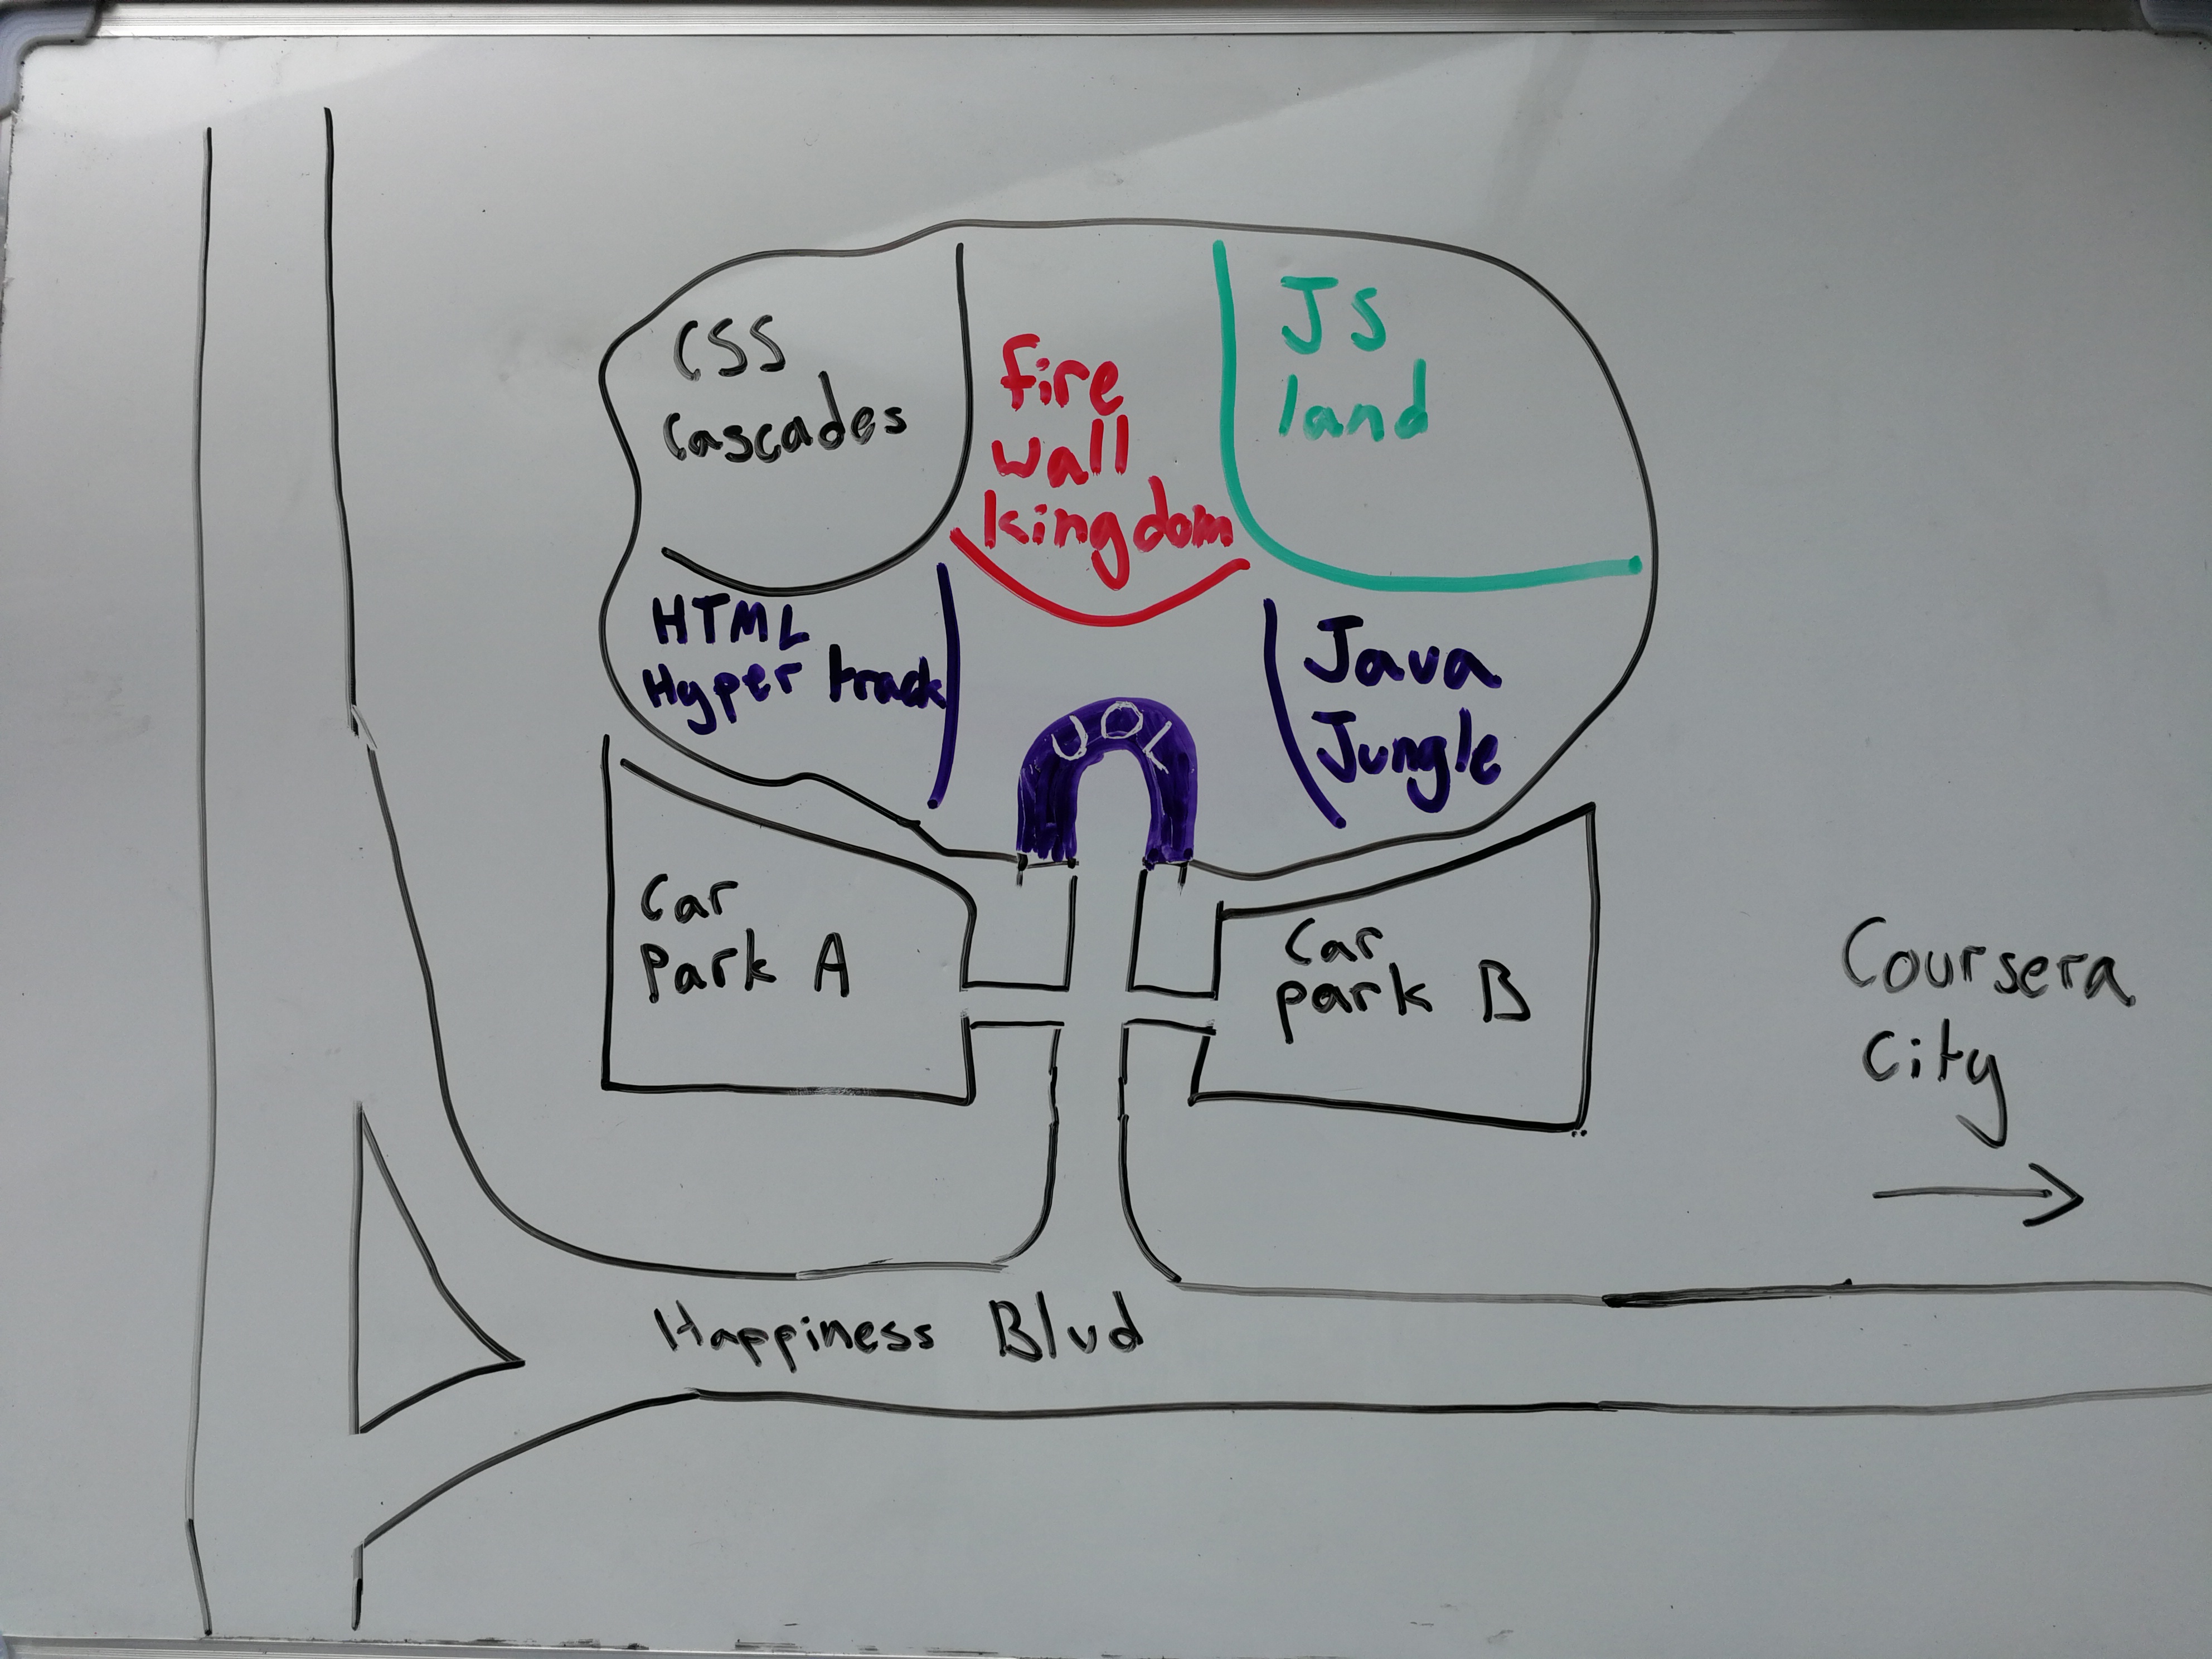 CSS
Cascades
fire
wall
kingdom
JS
land
HTML
Hyper track
Java
Jungle
UOL
Car
Park A
Car
park B
Coursera
City
Happiness Blvd